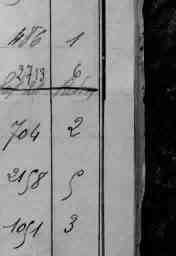 486 1
2713 6
704 2
2158 5
1051 3